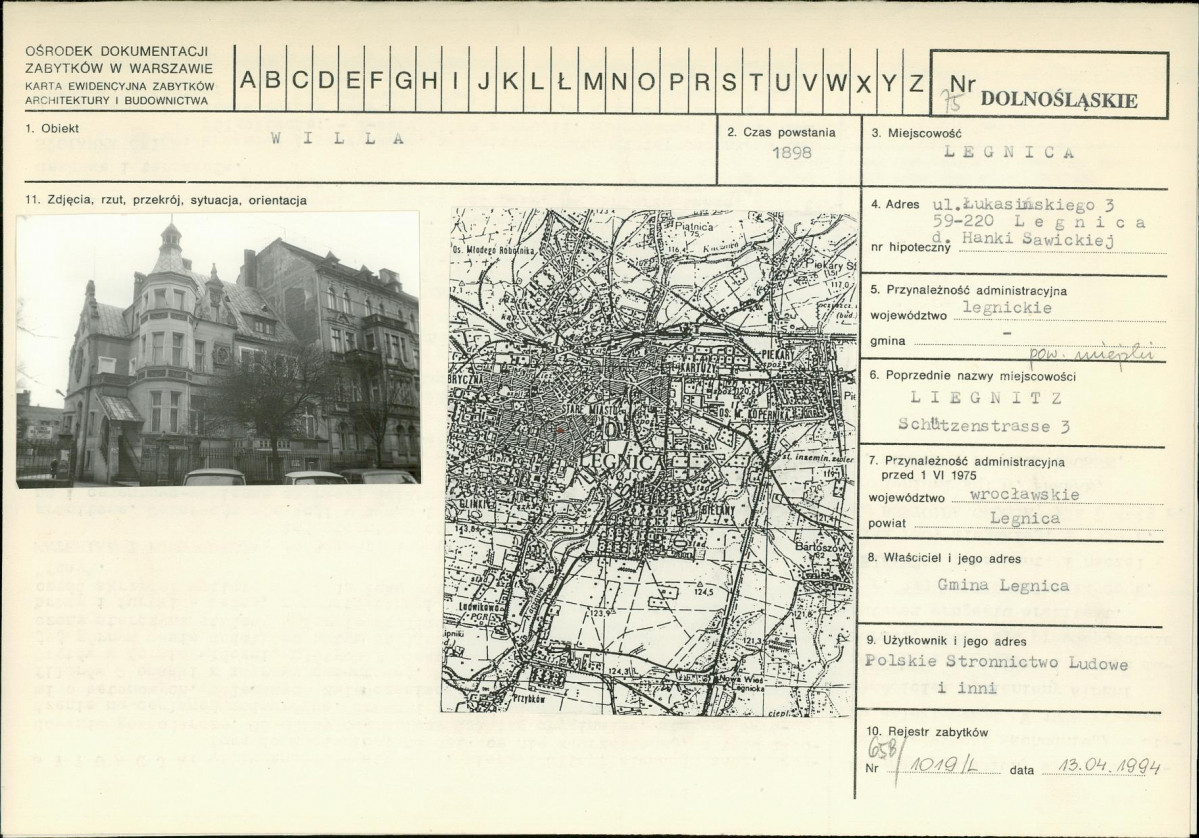 OŚRODEK DOKUMENTACJI
ZABYTKÓW W WARSZAWIE
KARTA EWIDENCYJNA ZABYTKÓW
ARCHITEKTURY I BUDOWNICTWA
A B C D E F G H I J K L Ł M N O P R S T U V W X Y Z
Nr
75 DOLNOŚLĄSKIE
1. Obiekt
W I L L A
2. Czas powstania
1898
3. Miejscowość
L E G N I C A
11. Zdjęcia, rzut, przekrój, sytuacja, orientacja
4. Adres ul.Łukasińskiego 3
59-220 L e g n i c a
d. Hanki Sawickiej
nr hipoteczny
5. Przynależność administracyjna
województwo legnickie
gmina -
pow. miejski
6. Poprzednie nazwy miejscowości
L I E G N I T Z
Schützenstrasse 3
7. Przynależność administracyjna
przed 1 VI 1975
województwo wrocławskie
powiat Legnica
8. Właściciel i jego adres
Gmina Legnica
9. Użytkownik i jego adres
Polskie Stronnictwo Ludowe
i inni
10. Rejestr zabytków
658/
Nr 1019/L data 13.04.1994
Piątnica
Os. Młodego Robotnika
116,4
Piekary
117,0
PIEKARY
KARTUZY
STARE MIASTO
OS. M. KOPERNIKA
LEGNICA
st. insemin. zwier.
GLINKI
BIELANY
Bartoszów
124,5
123,9
Ludwikowo
PGR
121,3
124,3
Nowa Wieś
Legnicka
Przybków